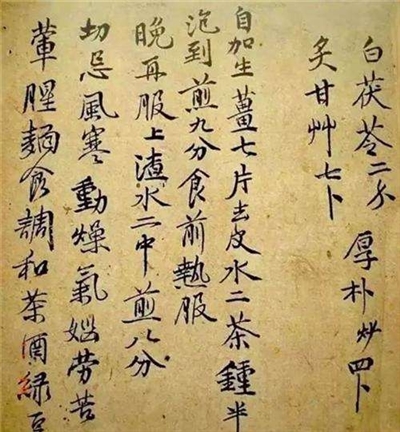 白茯苓二分 厚朴炒四卜
炙甘艸七卜
自加生薑七片去皮水二茶鍾半
泡到煎九分食前熱服
晚再服上渣水二中煎八分
切忌風寒動燥氣勞苦
葷腥麵食調和茶酒綠豆